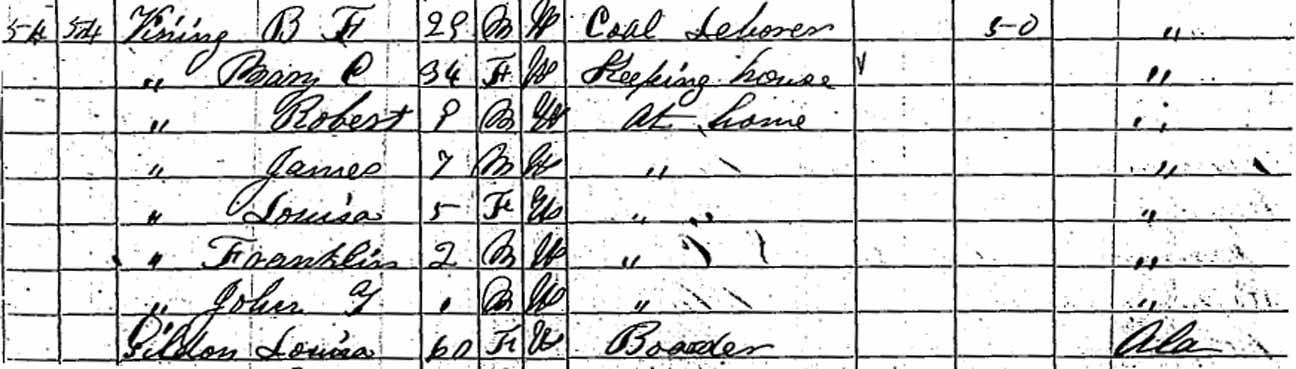 54 54 Vining B F 29 M W Coal Laborer 50 "
" Mary C 34 F W Keeping house "
" Robert 9 M W At home "
" James 7 M W " "
" Louisa 5 F W " " "
" Franklin 2 M W " "
" John 1 M W " "
Louisa 60 F W Boarder Ala